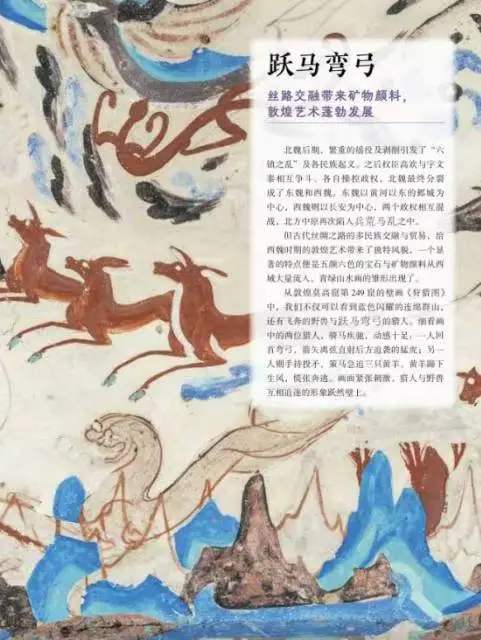 跃马弯弓
丝路交融带来矿物颜料，
敦煌艺术蓬勃发展
北魏后期，繁重的徭役及剥削引发了“六
镇之乱”及各民族起义。之后权臣高欢与宇文
泰相互争斗，各自操控政权，北魏最终分裂
成了东魏和西魏。东魏以黄河以东的邺城为
中心，西魏则以长安为中心，两个政权相互混
战，北方中原再次陷入兵荒马乱之中。
但古代丝绸之路的多民族交融与贸易，给
西魏时期的敦煌艺术带了独特风貌，一个显
著的特点便是五颜六色的宝石与矿物颜料从西
域大量流入，青绿山水画的雏形出现了。
从敦煌莫高窟第 249 窟的壁画《狩猎图》
中，我们不仅可以看到蓝色闪耀的连绵群山，
还有飞奔的野兽与跃马弯弓的猎人。细看画
中的两位猎人，骑马疾驰，动感十足：一人回
首弯弓，箭矢离弦直射后方追袭的猛虎；另一
人则手持投矛，策马急追三只黄羊，黄羊蹄下
生风，慌张奔逃。画面紧张刺激，猎人与野兽
互相追逐的形象跃然壁上。